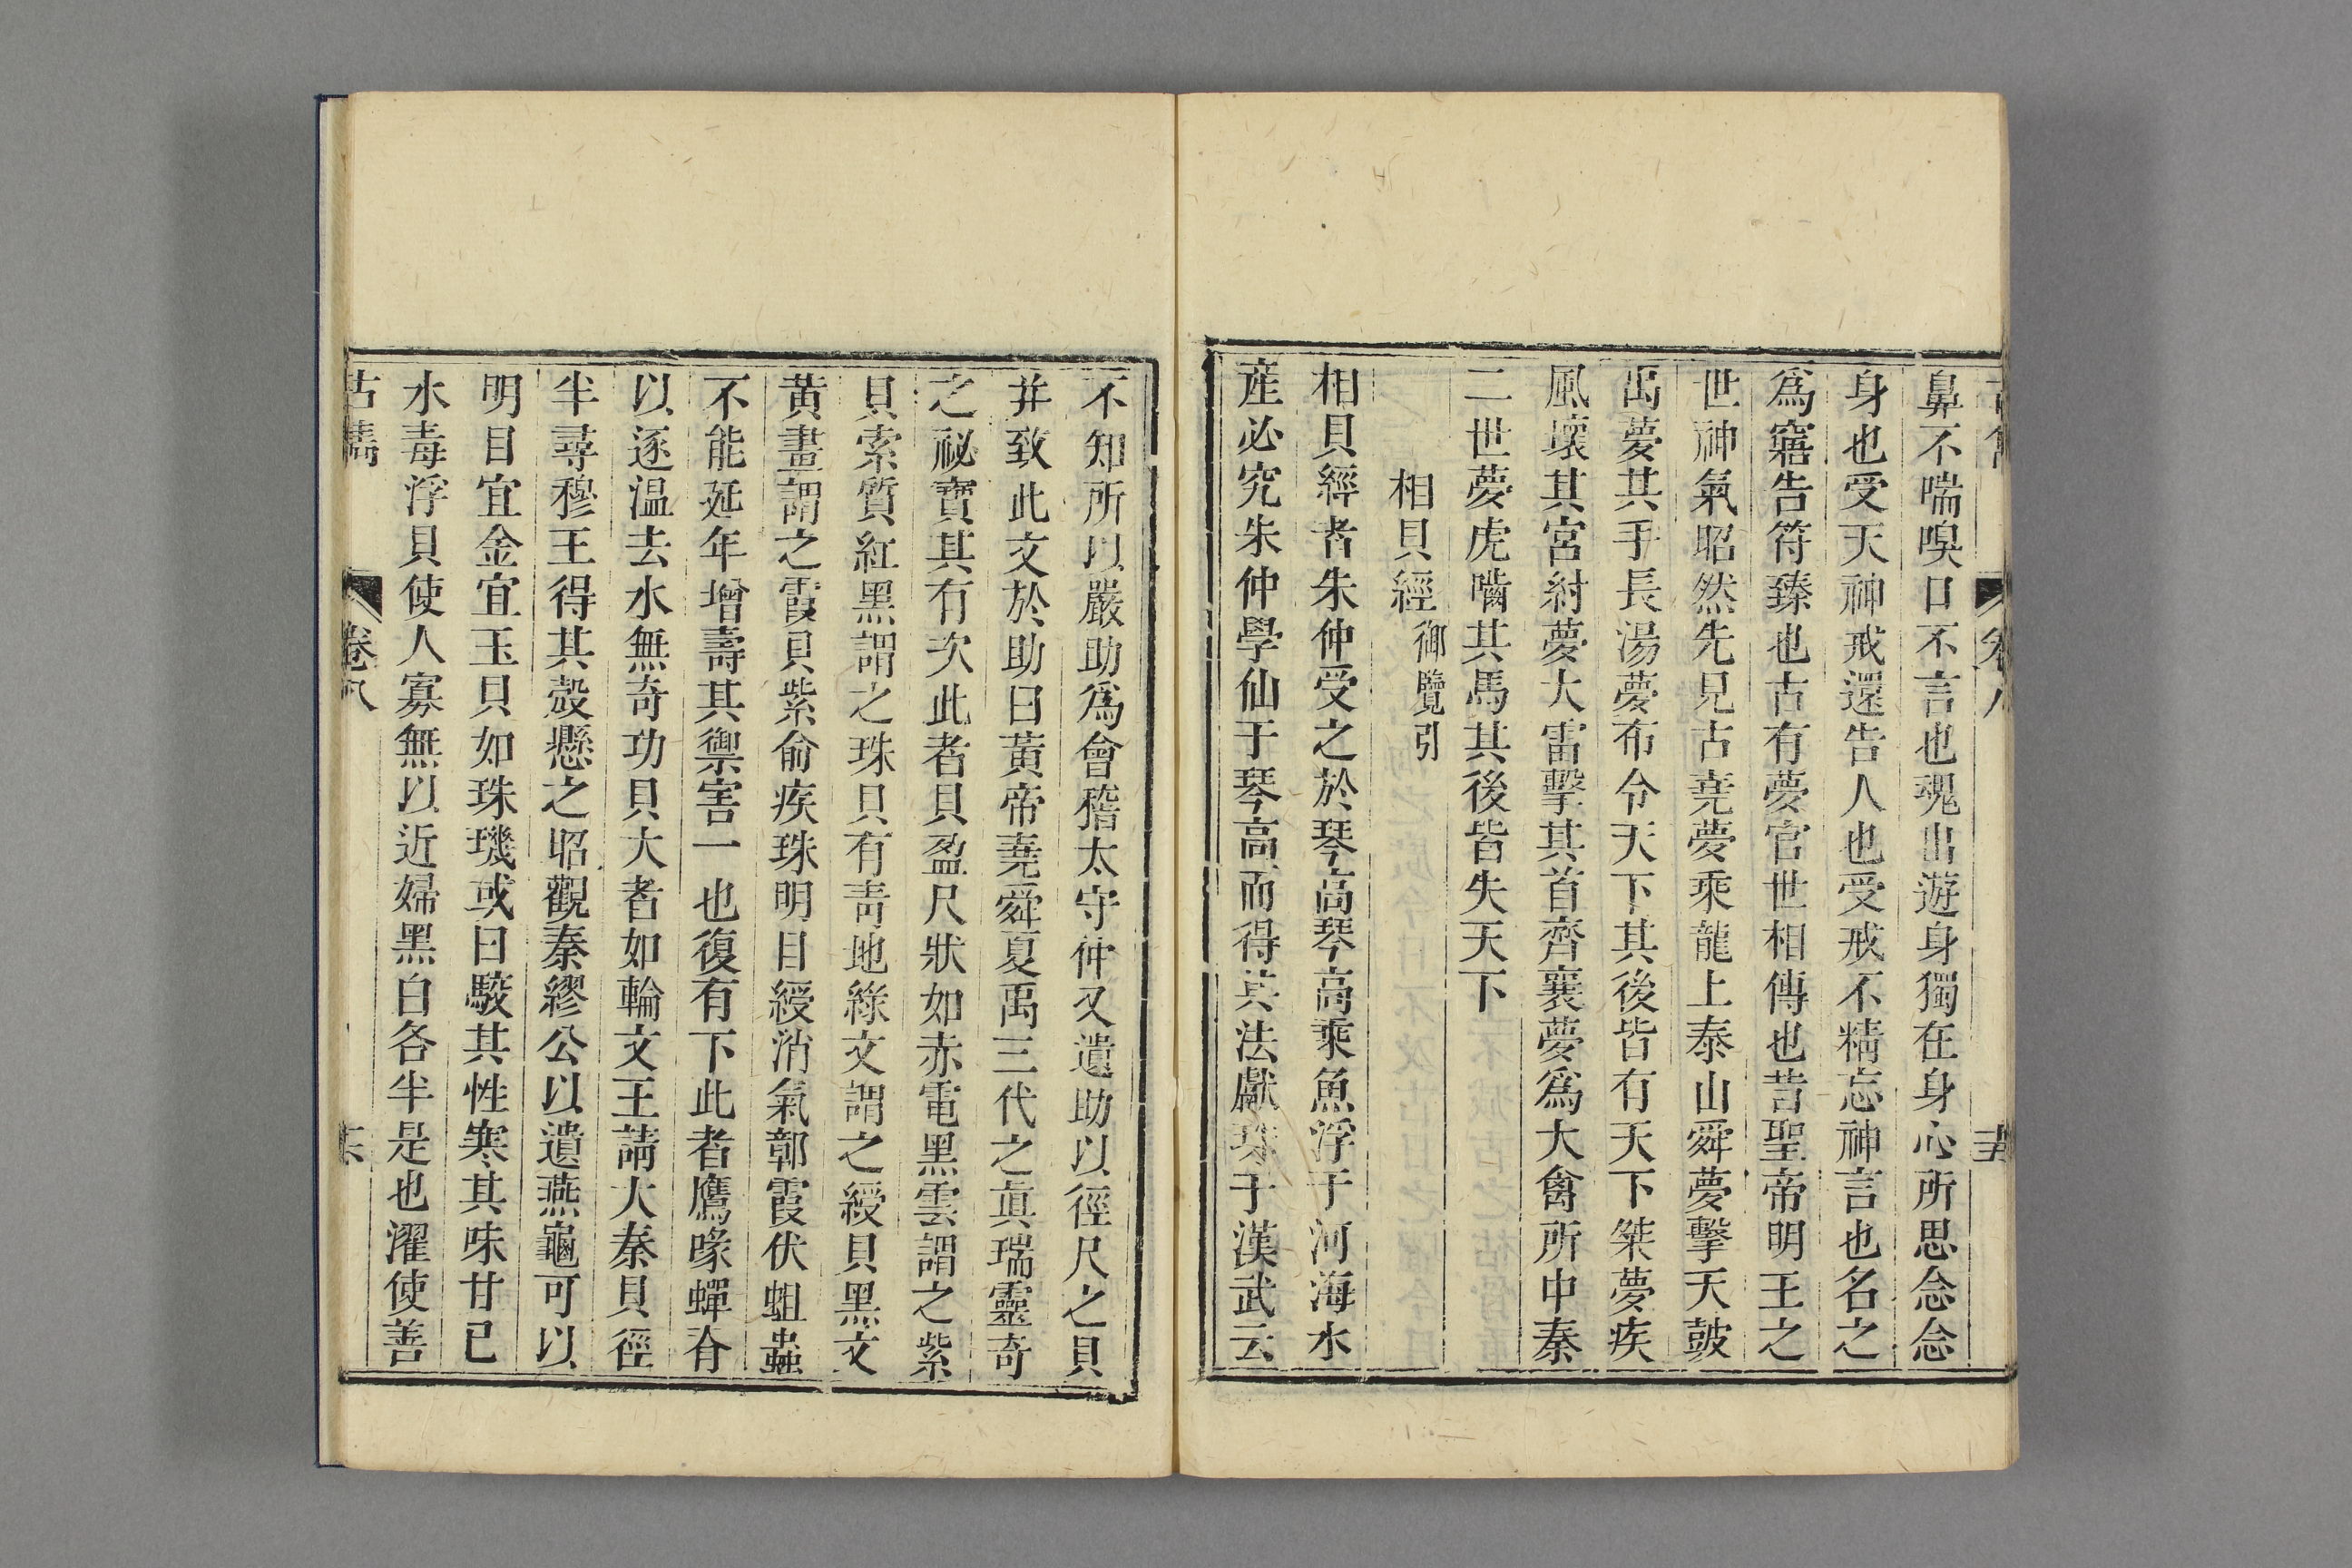 鼻不喘嗅口不言也魂出遊身獨在身心所思念念
身也受天神戒還告人也受戒不精忘神言也名之
為寤告符臻也古有夢官世相傳也昔聖帝明王之
世神氣昭然先見古堯夢乘龍上泰山舜夢擊天鼓
禹夢其手長湯夢布令天下其後皆有天下桀夢疾
風壞其宮紂夢大雷擊其首齊襄夢爲大禽所中秦
二世夢虎嚙其馬其後皆失天下
相貝經 御覽引
相貝經者朱仲受之於琴高琴高乘魚浮于河海水
産必究朱仲學仙于琴高而得其法獻珠于漢武云
不知所以嚴助爲會稽太守仲又遺助以徑尺之貝
并致此文於助曰黃帝堯舜夏禹三代之眞瑞靈奇
之祕寶其有次此者貝盈尺狀如赤電黑雲謂之紫
貝索質紅黑謂之珠貝有靑地綠文謂之綬貝黑文
黃畫謂之霞貝紫俞疾珠明目綬消氣鄣霞伏蛆蟲
不能延年增壽其禦害一也復有下此者鷹喙蟬脊
以逐温去水無奇功貝大者如輪文王請大秦貝徑
半尋穆王得其殼懸之昭觀秦繆公以遺燕龜可以
明目宜金宜玉貝如珠璣或曰駮其性寒其味甘已
水毒浮貝使人寡無以近婦黑白各半是也濯使善
古雋 卷八